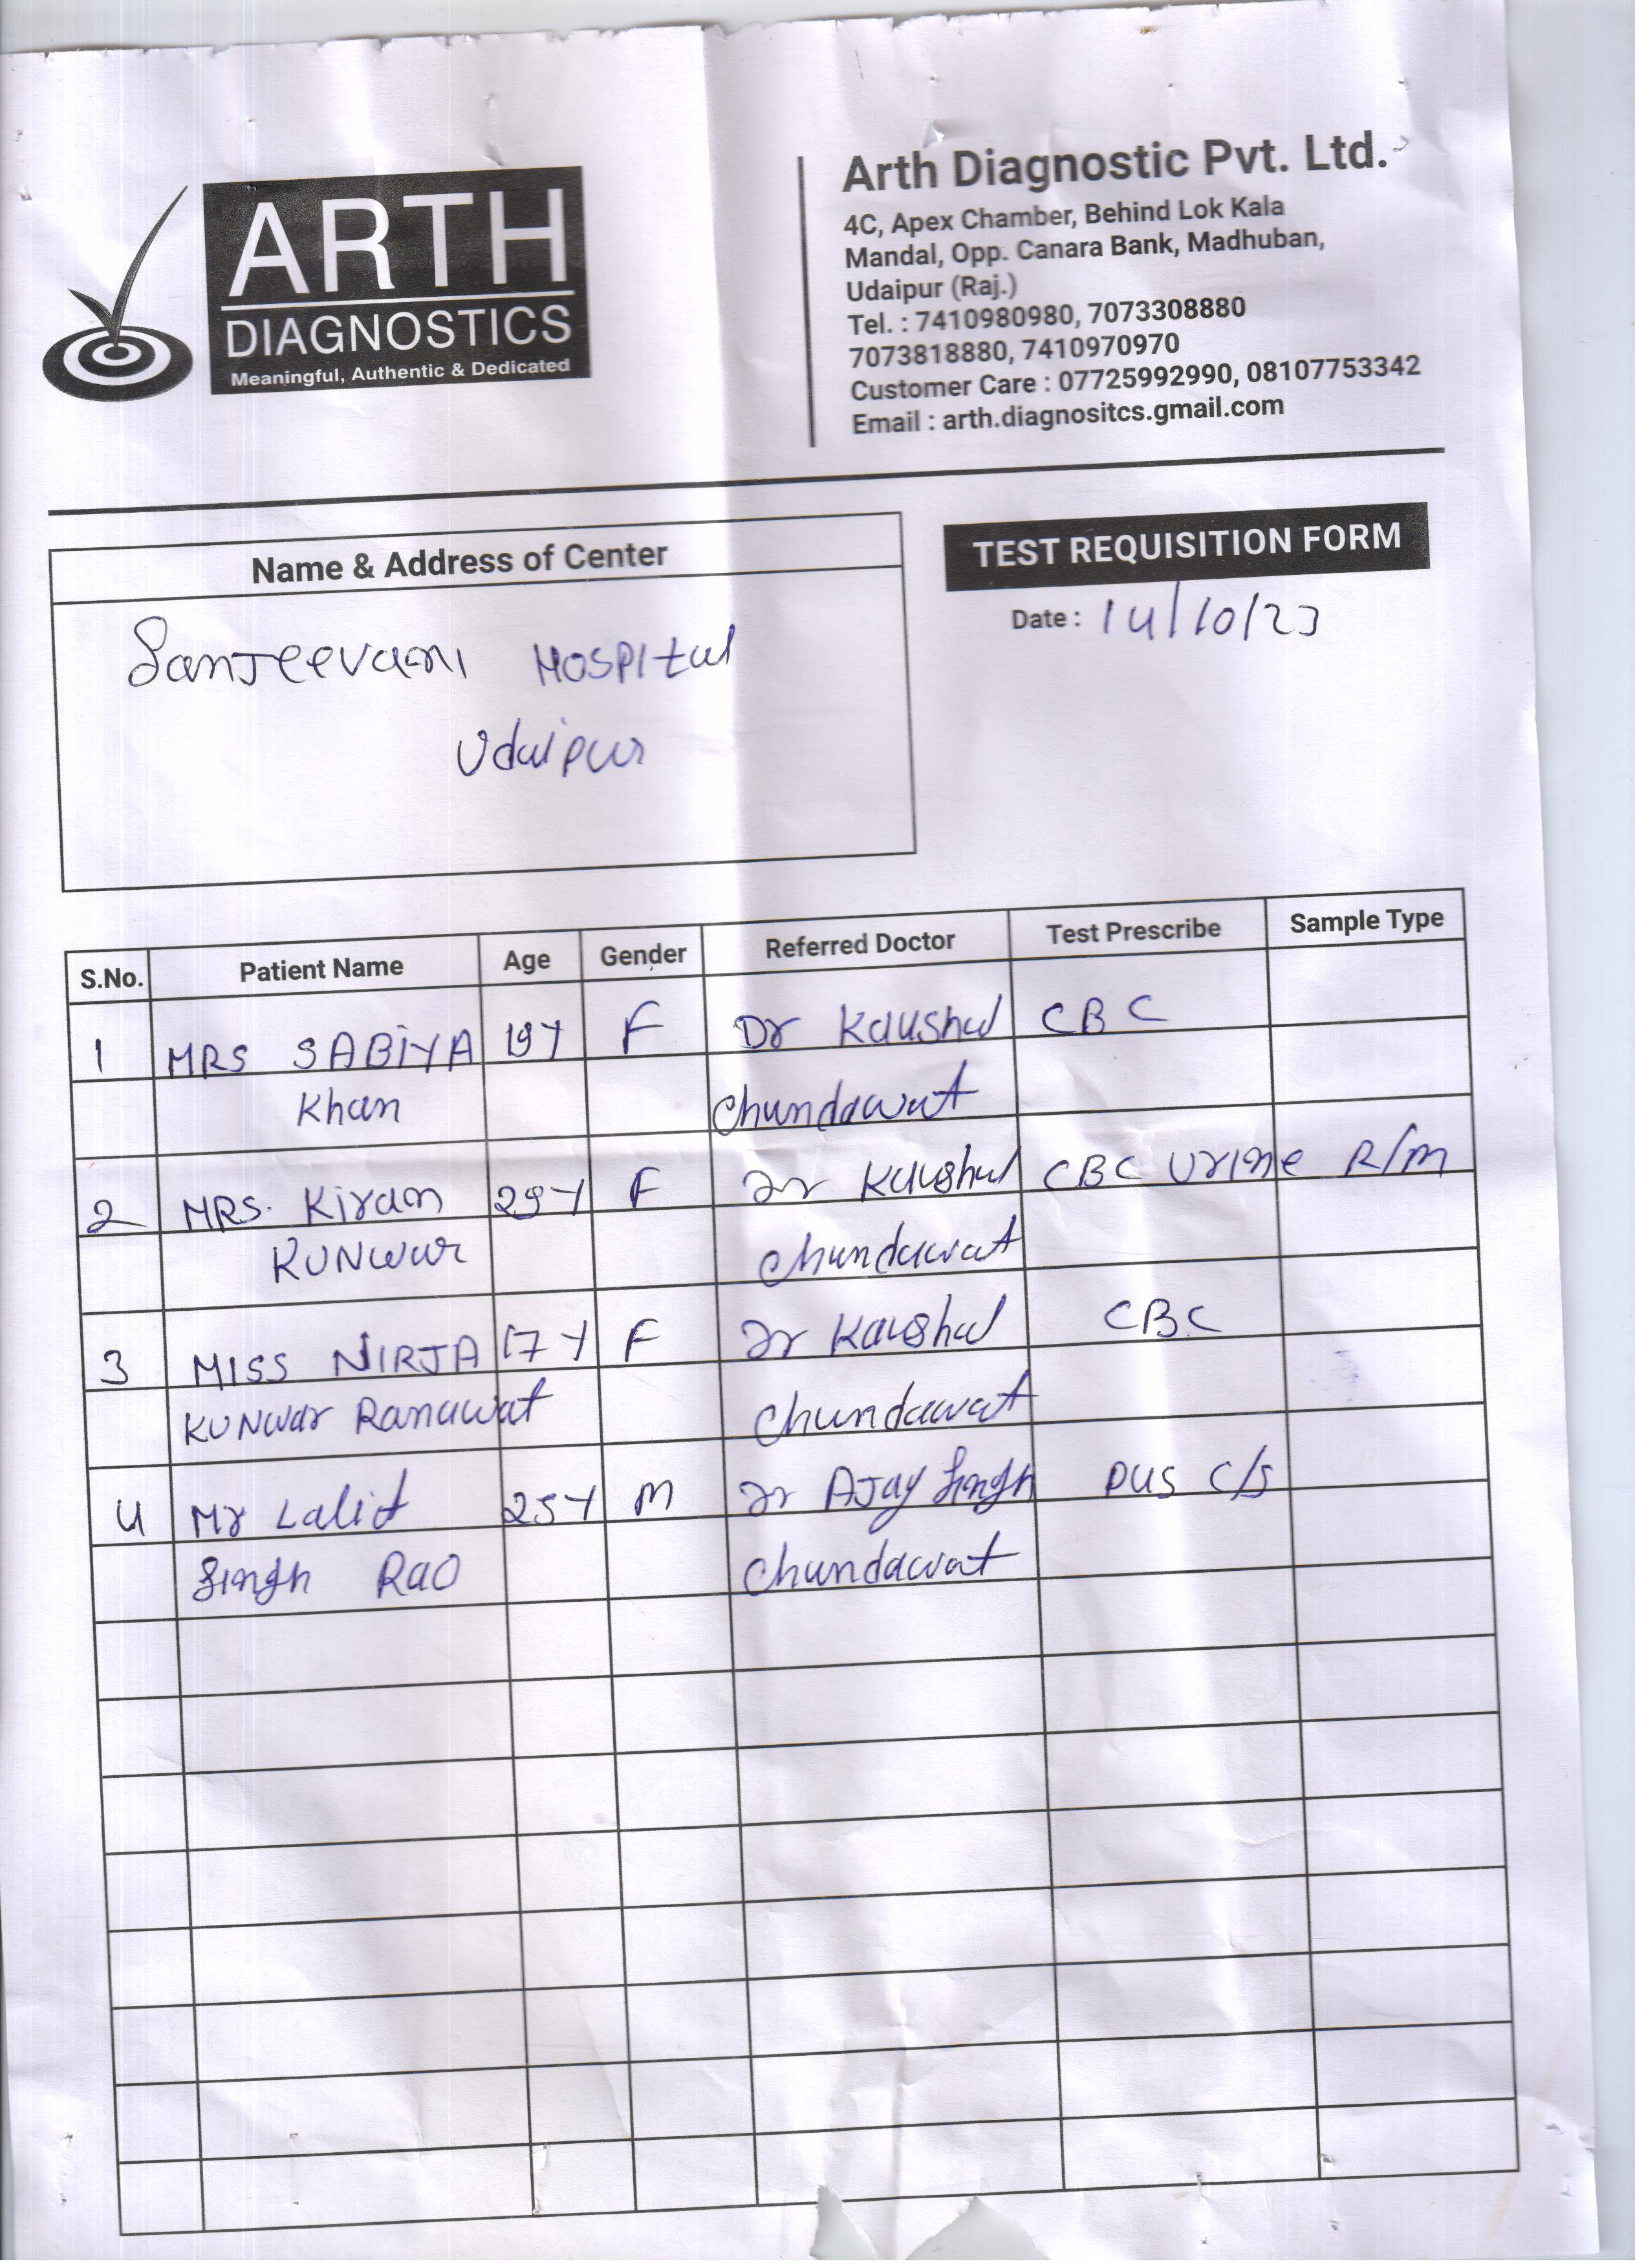 ARTH
DIAGNOSTICS
Meaningful, Authentic & Dedicated
Arth Diagnostic Pvt. Ltd.
4C, Apex Chamber, Behind Lok Kala
Mandal, Opp. Canara Bank, Madhuban,
Udaipur (Raj.)
Tel. : 7410980980, 7073308880
7073818880, 7410970970
Customer Care : 07725992990, 08107753342
Email : arth.diagnositcs.gmail.com
Name & Address of Center
Sanjeevani Hospital
Udaipur
TEST REQUISITION FORM
Date : 14/10/23
S.No. Patient Name Age Gender Referred Doctor Test Prescribe Sample Type
1 MRS SABIYA 19Y F Dr Kaushal CBC
Khan Chundawat
2 MRS. Kiran 29Y F Dr Kaushal CBC Urine R/m
KUNWar Chundawat
3 MISS NIRJA 17Y F Dr Kaushal CBC
KUNWar Ranawat Chundawat
4 Mr Lalit 25Y M Dr AJay Singh PUS C/S
Singh Rao Chundawat